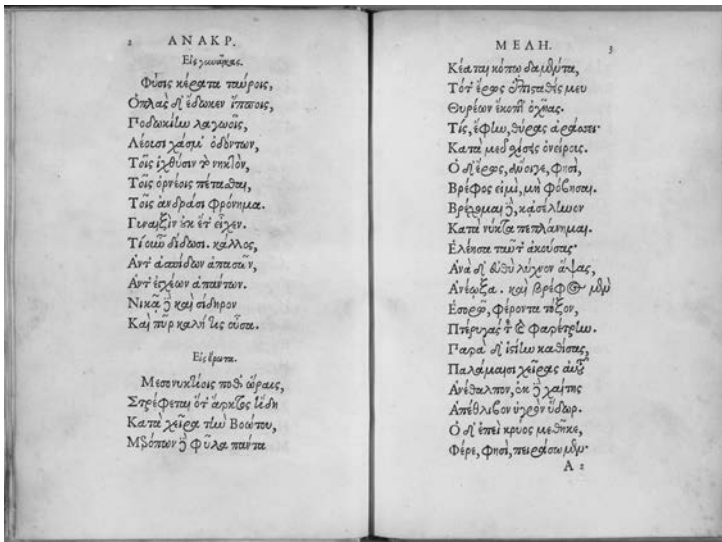 2 ΑΝΑΚΡ.
Εἰς γυναῖκας.
Φύσις κέρατα ταύροις,
Ὁπλὰς δ' ἔδωκεν ἵπποις,
Ποδωκίην λαγωοῖς,
Λέουσι χάσμ' ὀδόντων,
Τοῖς ἰχθύσιν τὸ νηκτὸν,
Τοῖς ὀρνέοις πέτασθαι,
Τοῖς ἀνδράσι φρόνημα.
Γυναιξὶν οὐκ ἔτ' εἶχεν.
Τί οὖν δίδωσι. κάλλος,
Ἀντ' ἀσπίδων ἁπασῶν,
Ἀντ' ἐγχέων ἁπάντων.
Νικᾷ δὲ καὶ σίδηρον
Καὶ πῦρ καλή τις οὖσα.
Εἰς ἔρωτα.
Μεσονυκτίοις ποθ' ὥραις,
Στρέφεται ὅτ' ἄρκτος ἤδη
Κατὰ χεῖρα τὴν Βοώτου,
Μερόπων δὲ φῦλα πάντα
ΜΕΛΗ. 3
Κέαται κόπῳ δαμέντα,
Τότ' ἔρως ἐπισταθείς μευ
Θυρέων ἔκοπτ' ὀχῆας.
Τίς, ἔφην, θύρας ἀράσσει·
Κατὰ μευ σχίσεις ὀνείρους.
Ὁ δ' ἔρως, ἄνοιγε, φησὶ,
Βρέφος εἰμὶ, μὴ φόβησαι.
Βρέχομαι δὲ, κἀσέληνον
Κατὰ νύκτα πεπλάνημαι.
Ἐλέησα ταῦτ' ἀκούσας·
Ἀνὰ δ' εὐθὺ λύχνον ἅψας,
Ἀνέῳξα. καὶ βρέφος μὲν
Ἐσορῶ, φέροντα τόξον,
Πτέρυγάς τε καὶ φαρέτρην.
Παρὰ δ' ἱστίην καθίσας,
Παλάμαισι χεῖρας αὐτοῦ
Ἀνέθαλπον, ἐκ δὲ χαίτης
Ἀπέθλιβον ὑγρὸν ὕδωρ.
Ὁ δ' ἐπεὶ κρύος μεθῆκε,
Φέρε, φησὶ, πειράσωμεν·
A 2